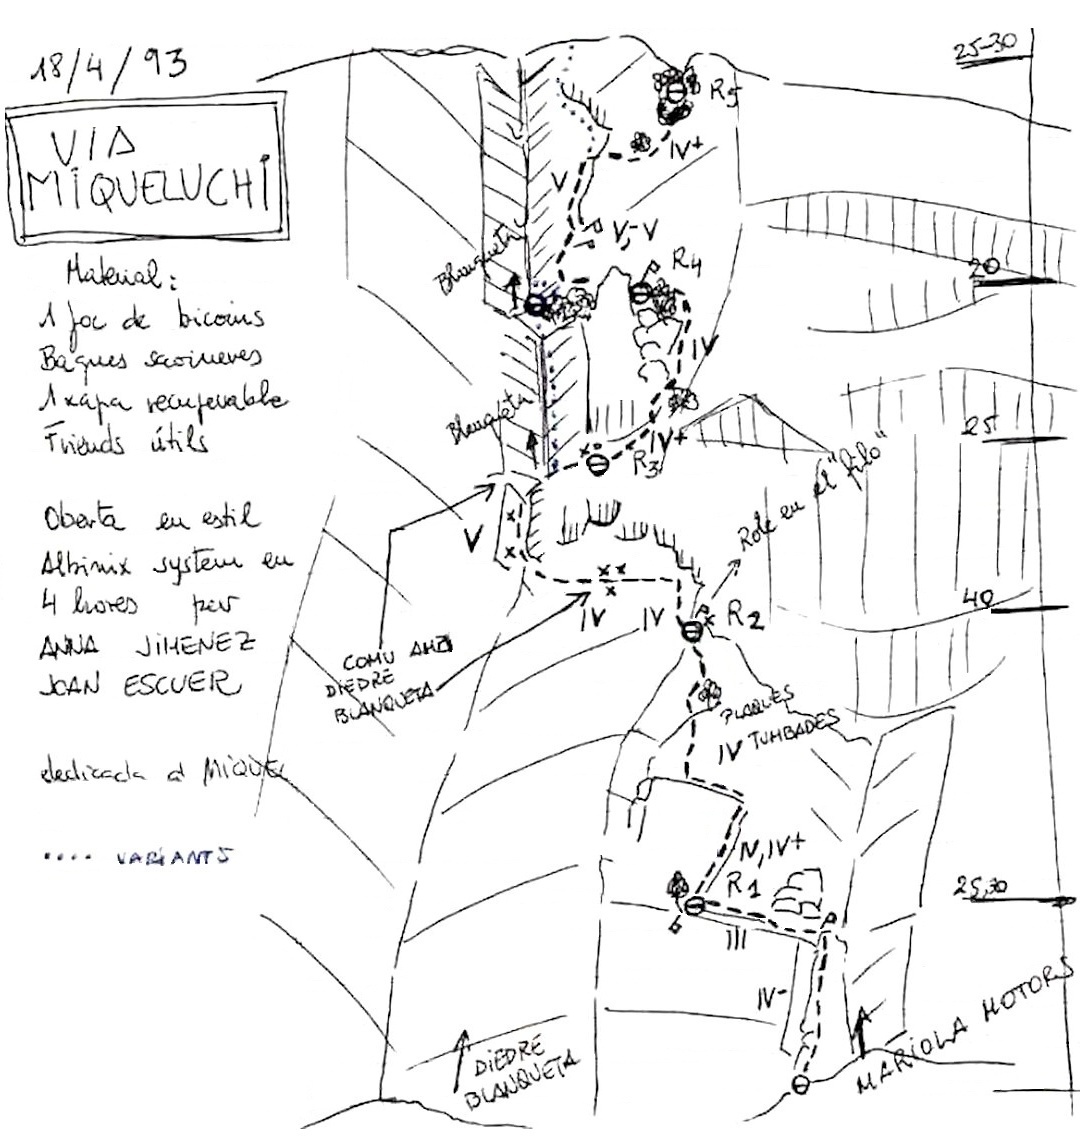 18/4/93
VIA
MIQUELUCHI
Material:
1 joc de bicoins
Bagues savineres
1 xapa recuperable
Friends útils
Oberta en estil
Albinix system en
4 hores per
ANNA JIMENEZ
JOAN ESCUER
dedicada al MIQUEL
.... VARIANTS
25-30
R5
IV+
V
V-V
Blanqueta
R4
20
IV
Blanqueta
V+
R3
25
V
Role en el "filo"
40
IV
IV
R2
COMU AMB
DIEDRE
BLANQUETA
PLAQUES
TUMBADES
IV
IV, IV+
R1
25,30
III
IV-
MARIOLA MOTORS
DIEDRE
BLANQUETA